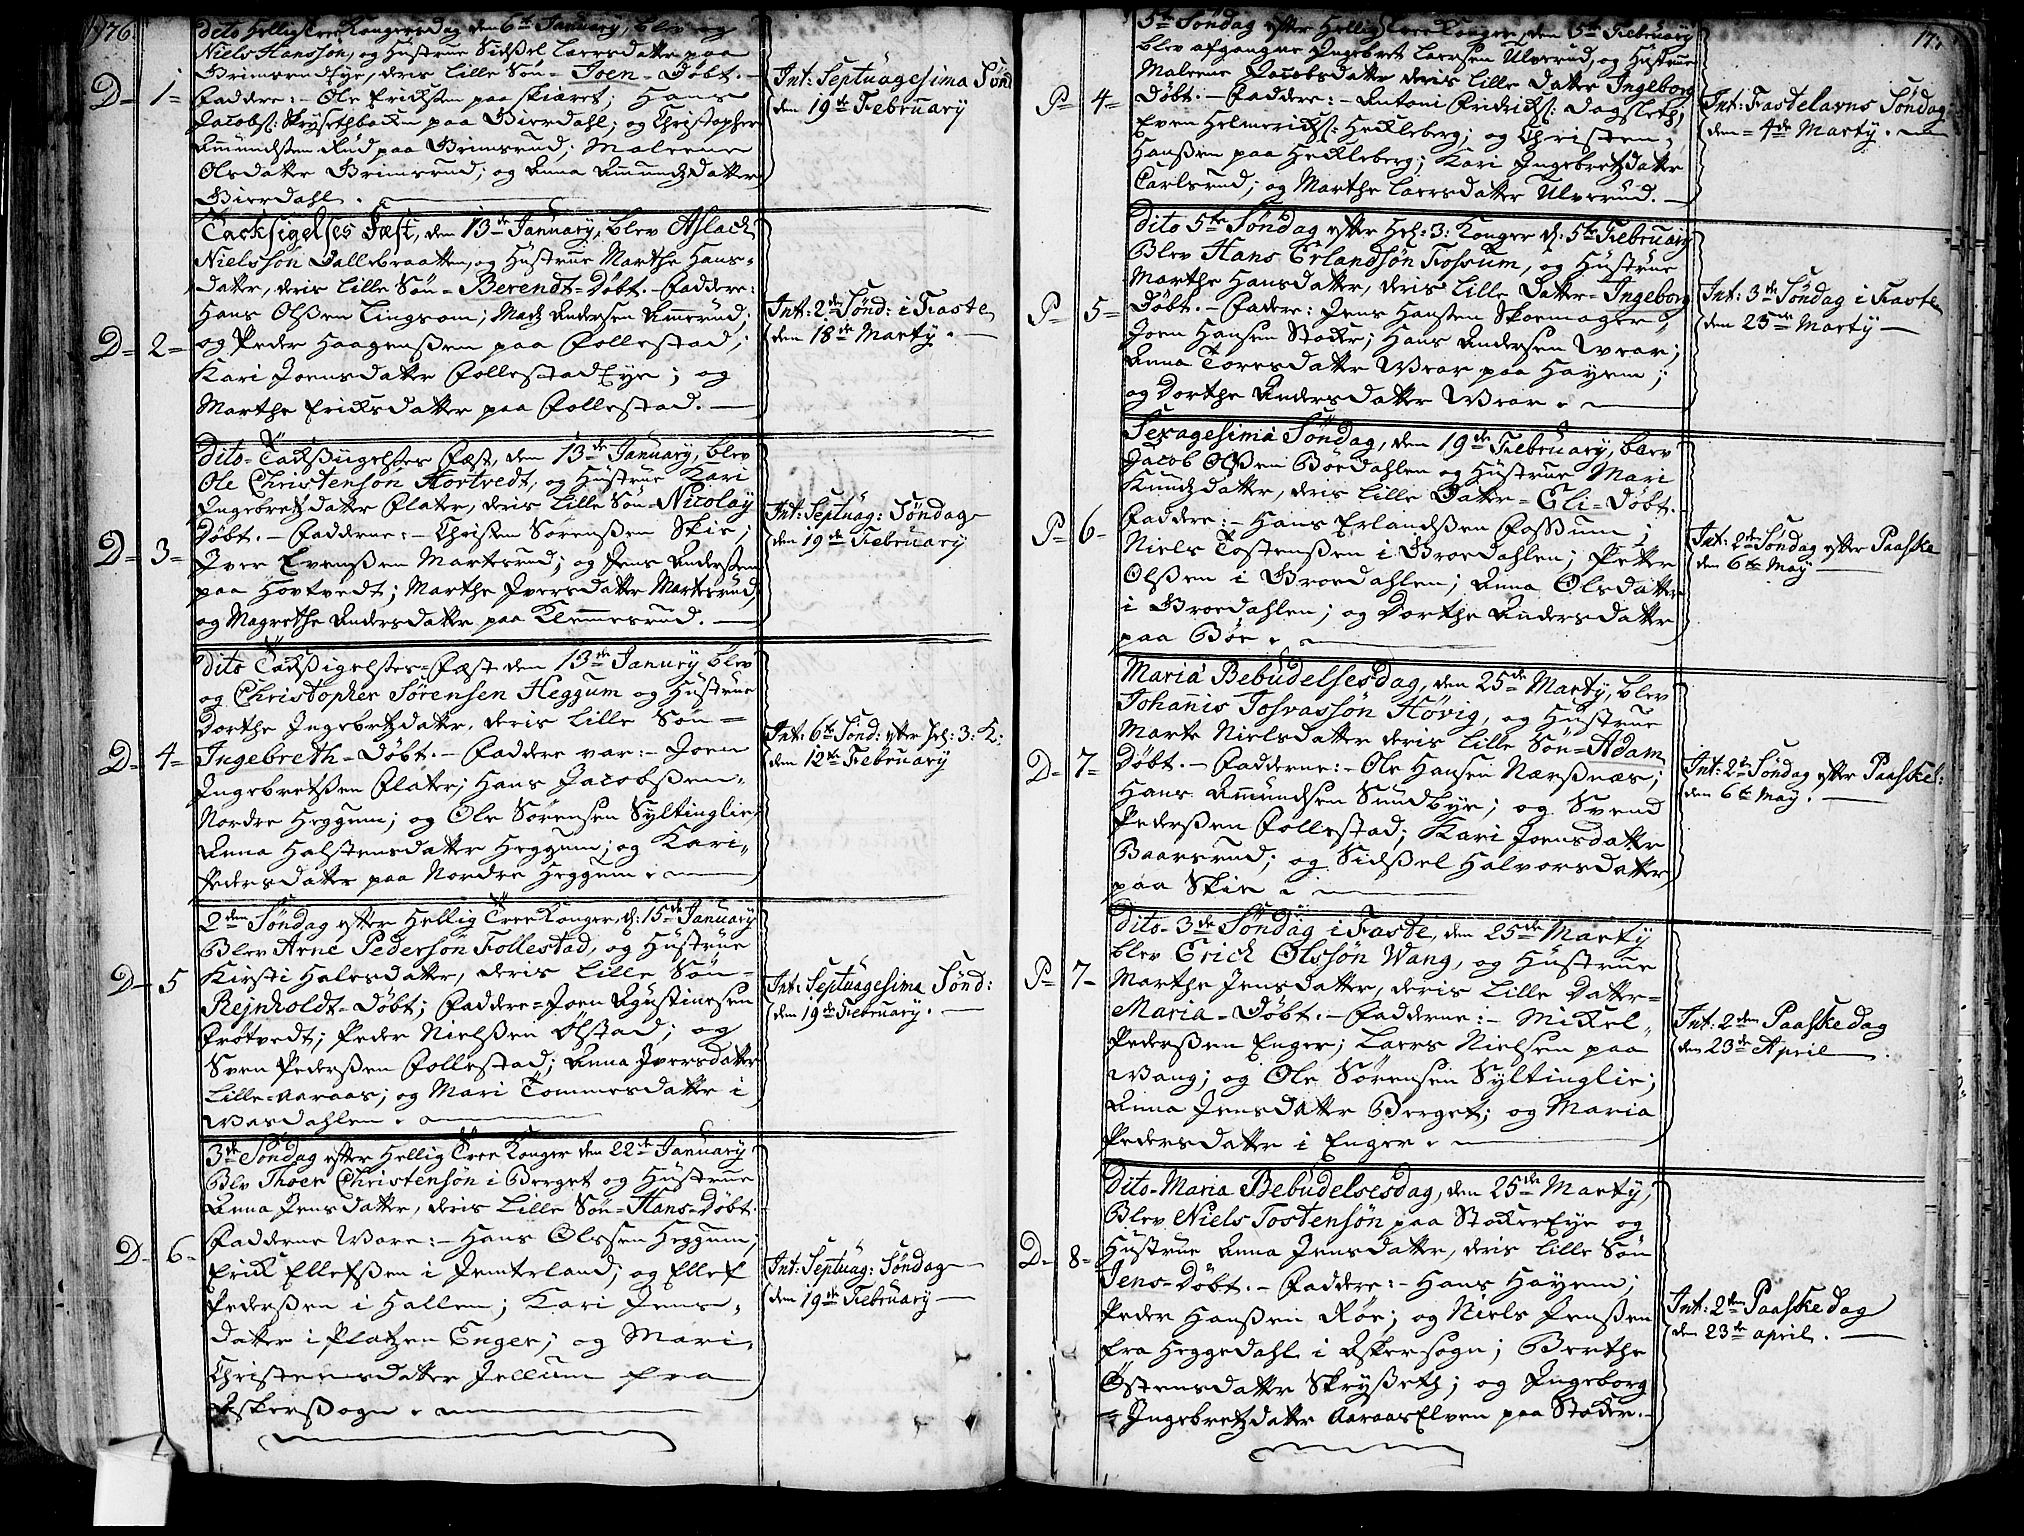 176.
Dito Hellig Tree Kongersdag den 6te January, blev og
Niels Hansson, og Hustrue Sidsel Laersdatter paa
Brimsrud Eye, deris Lille Søn = Joen = Døbt. -
D - 1 = Faddere: - Ole Ericksen paa Skiaret; Hans
Jacobs: Skrysethbacken paa Gierdahl; og Christopher
Amundsen Rud paa Brimsrud; Maleene
Olsdatter Brimsrud; og Anna Amundsdatter
Gierdahl.
Int: Septuagesima Sønd
den 19de February
Tacksigelses Fæst, den 13de January, blev Aslach
Nielsson Dallebraatten, og Hustrue Marthe Hans-
datter, deris Lille Søn = Berendt = Døbt. - Faddere:
Hans Olssen Lingsom; Mads Andersen Amerud;
D = 2 = og Peder Haagenssen paa Follestad;
Kari Joensdatter Follestad Eye; og
Marthe Ericksdatter paa Follestad.
Int: 2de Sønd: i Faste
den 18de Marty.
Dito = Tacksigelses Fæst, den 13de January, blev
Ole Christensøn Hortvedt, og Hustrue Kari
Ingebretzdatter Flater, deris Lille Søn = Nicolay
Døbt. - Fadderne: - Christen Sørenssen Skie;
D = 3 = Iver Evenssen Martesrud; og Jens Anderssen
paa Hovtvedt; Marthe Iversdatter Martesrud;
og Magrethe Andersdatter paa Klemmesrud.
Int: Septuag: Søndag
den 19de February
Dito Tacksigelses = Fæst den 13de January blev
og Christopher Sørensen Heggum og Hustrue
Dorthe Ingebretzdatter, deris Lille Søn =
D - 4 = Ingebreth = Døbt. - Faddere var: - Joen
Ingebretssen Flater; Hans Jacobssen
Nordre Heggum; og Ole Sørensen Syltinglie,
Anna Halstensdatter Heggum; og Kari
Pedersdatter paa Nordre Heggum.
Int: 6te Sønd: efter Hel: 3: K:
den 12te February
2den Søndag efter Hellig Tree Konger, d: 15de January
Blev Arne Pedersøn Follestad, og Hustrue
Kirsti Halesdatter, deris Lille Søn -
D - 5 Rejnholdt = Døbt; Faddere = Joen Agustinesen
Frøtvedt; Peder Nielssen Ølstad; og
Sven Pederssen Follestad; Anna Iversdatter
Lille = Aaraas; og Mari Tommesdatter i
Wardahlen.
Int: Septuagesima Sønd:
den 19de February.
3de Søndag efter Hellig Tree Konger den 22de January
Blv Thoer Christensøn i Berget og Hustrue
Anna Jensdatter, deris Lille Søn = Hans = Døbt.
D - 6 - Fadderne Ware: - Hans Olssen Heggum;
Erick Ellefssen i Jemterland; og Ellef
Pederssen i Hallem; Kari Jens-
datter i Platzen Enger; og Mari
Christensdatter Jellum fra
Askerssogn.
Int: Septuag: Søndag
den 19de February
17
5te Søndag efter Hellig Tree Konger, den 5te February
blev afgangne Ingebret Laersen Ulverud, og Hustrue
Maleene Jacobsdatter deris Lille Datter Ingeborg
P = 4 = Døbt. - Faddere: - Antoni Fridrichs: Dagsleth;
Even Helmericks: Heckleberg; og Christen
Hanssen paa Heckleberg; Kari Ingebretzdatter
Carlsrud; og Marthe Laersdatter Ulverud.
Int: Fastelavns Søndag
den = 4de Marty.
Dito 5te Søndag efter Hel: 3: Konger d. 5te February
Blev Hans Erlandsøn Fossum, og Hustrue
Marthe Hansdatter, deris Lille Datter = Ingeborg
P - 5 = Døbt. - Faddere: Jens Hanssen Skoemager;
Joen Hansen Stocke; Hans Andersen Wear;
Anna Toresdatter Wear paa Hayem;
og Dorthe Andersdatter Wear.
Int: 3de Søndag i Faste
den 25de Marty
Sexagesima Søndag, den 19de February, blev
Jacob Olssen Børdahlen og Hustrue Mari
Knudzdatter, deris Lille Datter = Eli = Døbt.
P - 6 - Faddere: - Hans Erlandssen Fossum;
Niels Tostenssen i Groedahlen; Petter
Olssen i Groedahlen; Anna Olsdatter
i Groedahlen; og Dorthe Andersdatter
paa Bøe.
Int: 2de Søndag efter Paaske
den 6te May
Mariæ Bebudelsesdag, den 25de Marty, blev
Johannis Josvassøn Høvig, og Hustrue
Marte Nielsdatter deris Lille Søn = Adam
D - 7 = Døbt. - Fadderne: - Ole Hansen Nærssnæs;
Hans Amundsen Sundbye; og Svend
Pederssen Follestad; Kari Joensdatter
Baarsrud; og Sidssel Halvorsdatter
paa Skie.
Int: 2de Søndag efter Paaske:
den 6te May.
Dito - 3de Søndag i Faste, den 25de Marty
blev Erick Olssøn Wang, og Hustrue
P = 7 - Marthe Jensdatter, deris Lille Datter =
Maria = Døbt. - Fadderne: - Mickel
Pederssen Enger; Laers Nielsen paa
Wang; og Ole Sørensen Syltinglie;
Anna Jensdatter Berget; og Maria
Pedersdatter i Enger.
Int: 2den Paaskedag
den 23de April
Dito - Maria Bebudelsesdag, den 25de Marty,
Blev Niels Tostensøn paa Stocker Eye og
D - 8 - Hustrue Anna Jensdatter, deris Lille Søn
Jens = Døbt. - Faddere: - Hans Hayem;
Peder Hanssen Røe; og Niels Jenssen
fra Heggedahl i Askersogn; Berthe
Østensdatter Skrysseth; og Ingeborg
Ingebretzdatter Aaraas Elven paa Stocker.
Int: 2den Paaskedag
den 23de april.